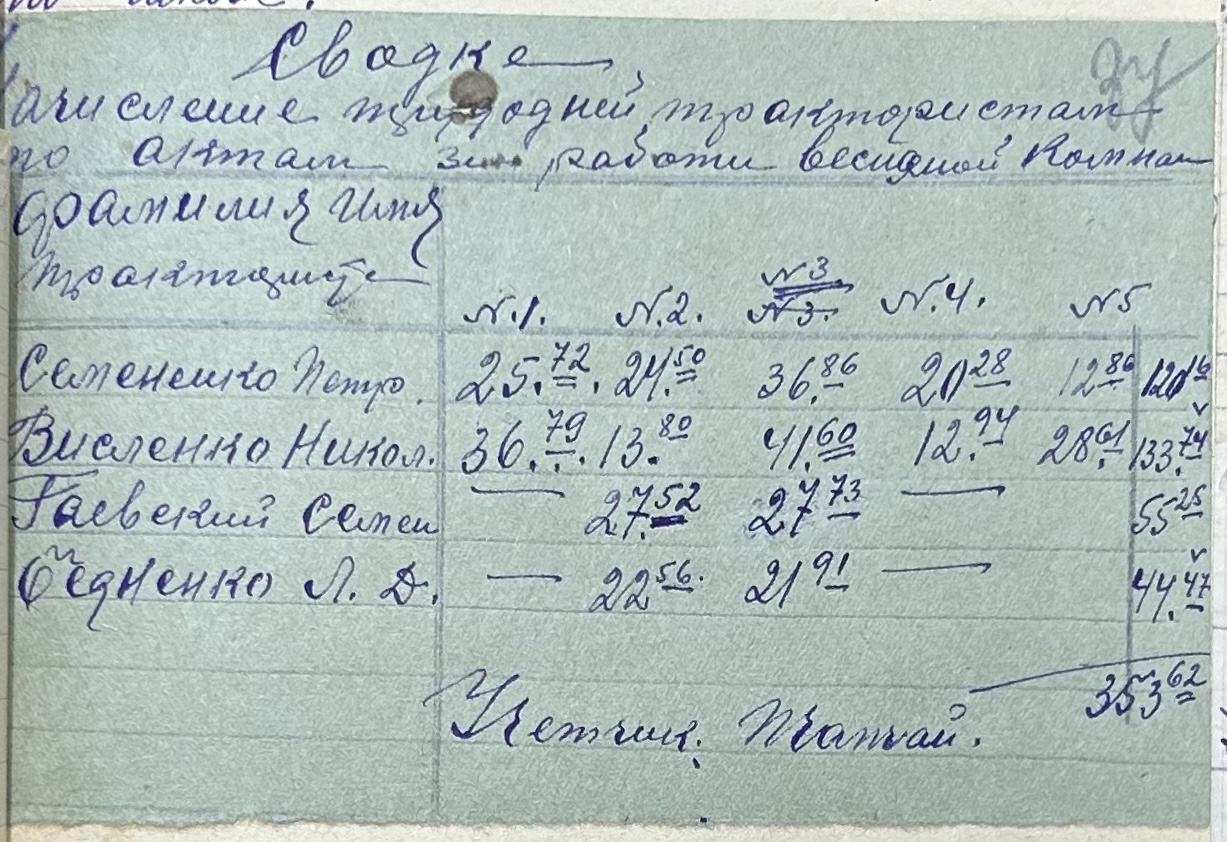 Сводка
ачисление трудодней трактористам
по актам за работи весидной Компан
Фамилия Имя
тракториста
N.1. N.2. N3 N3. N.4. N5
Семененко Петро. 25.72. 24.50 36.86 20 28 12 86 120 16
Висленко Никол. 36.79. 13.80 41.60 12.94 28.61 133.74
Гаевский Семен — 27.52 27 73 — 55 25
Бедненко Л. Д. — 22 56. 21 91 — 44.47
353 62
Учетчик.